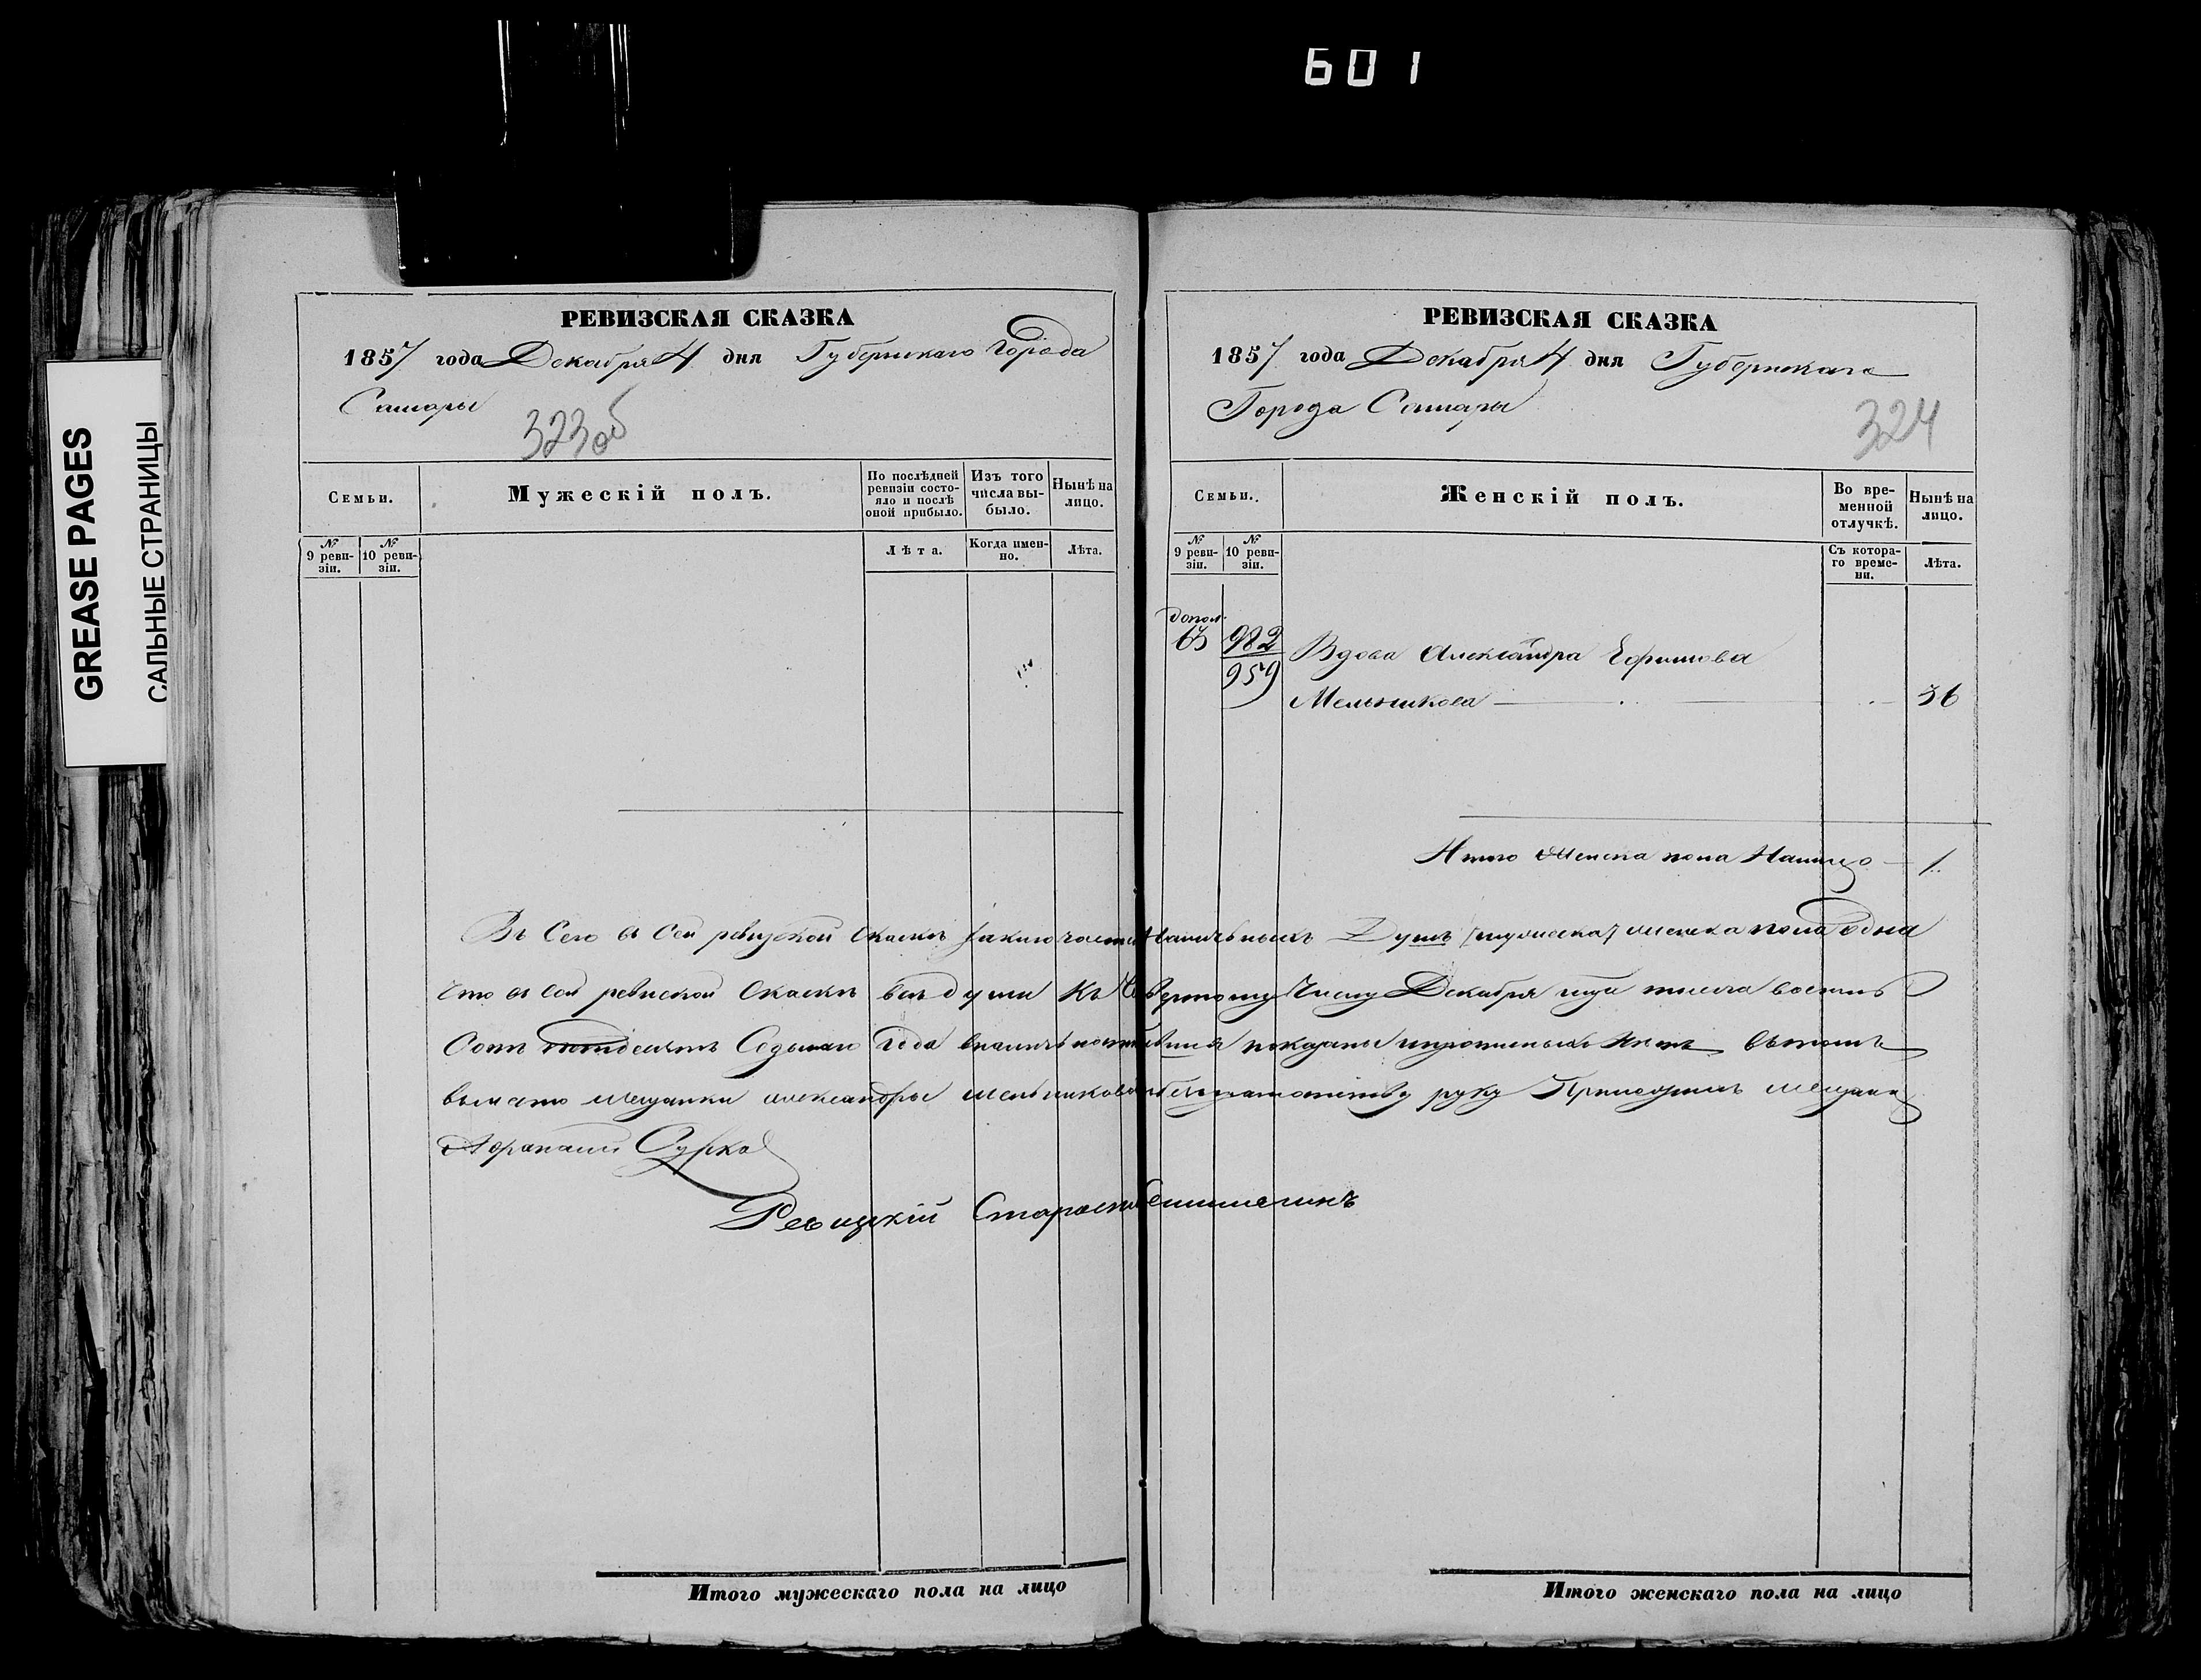 601
GREASE PAGES
САЛЬНЫЕ СТРАНИЦЫ
РЕВИЗСКАЯ СКАЗКА
1857 года Декабря 4 дня Губернскаго Города
Самары
323об
Семьи.
Мужескій полъ.
По послѣдней ревизіи состояло и послѣ оной прибыло.
Изъ того числа выбыло.
Нынѣ на лицо.
№ 9 ревизіи.
№ 10 ревизіи.
Лѣта.
Когда именно.
Лѣта.
РЕВИЗСКАЯ СКАЗКА
1857 года Декабря 4 дня Губернскаго
Города Самары
324
Семьи.
Женскій полъ.
Во временной отлучкѣ.
Нынѣ на лицо.
№ 9 ревизіи.
№ 10 ревизіи.
Съ котораго времени.
Лѣта.
допол.
63 982 Вдова Александра Ефимова
959
Мельникова 36
Итого Женска пола Налицо 1
Въ Сей ревизской Сказкѣ Наличныхъ Душъ женска пола одна
Что въ сей ревиской Скаскѣ всѣ души къ Декабря тысеча восемь
Сотъ Седьмаго года показаны
мещанки александры мельниковой руку Приложилъ мещанинъ
Афанасій Сурковъ
Ревизкій Староста
Итого мужескаго пола на лицо
Итого женскаго пола на лицо